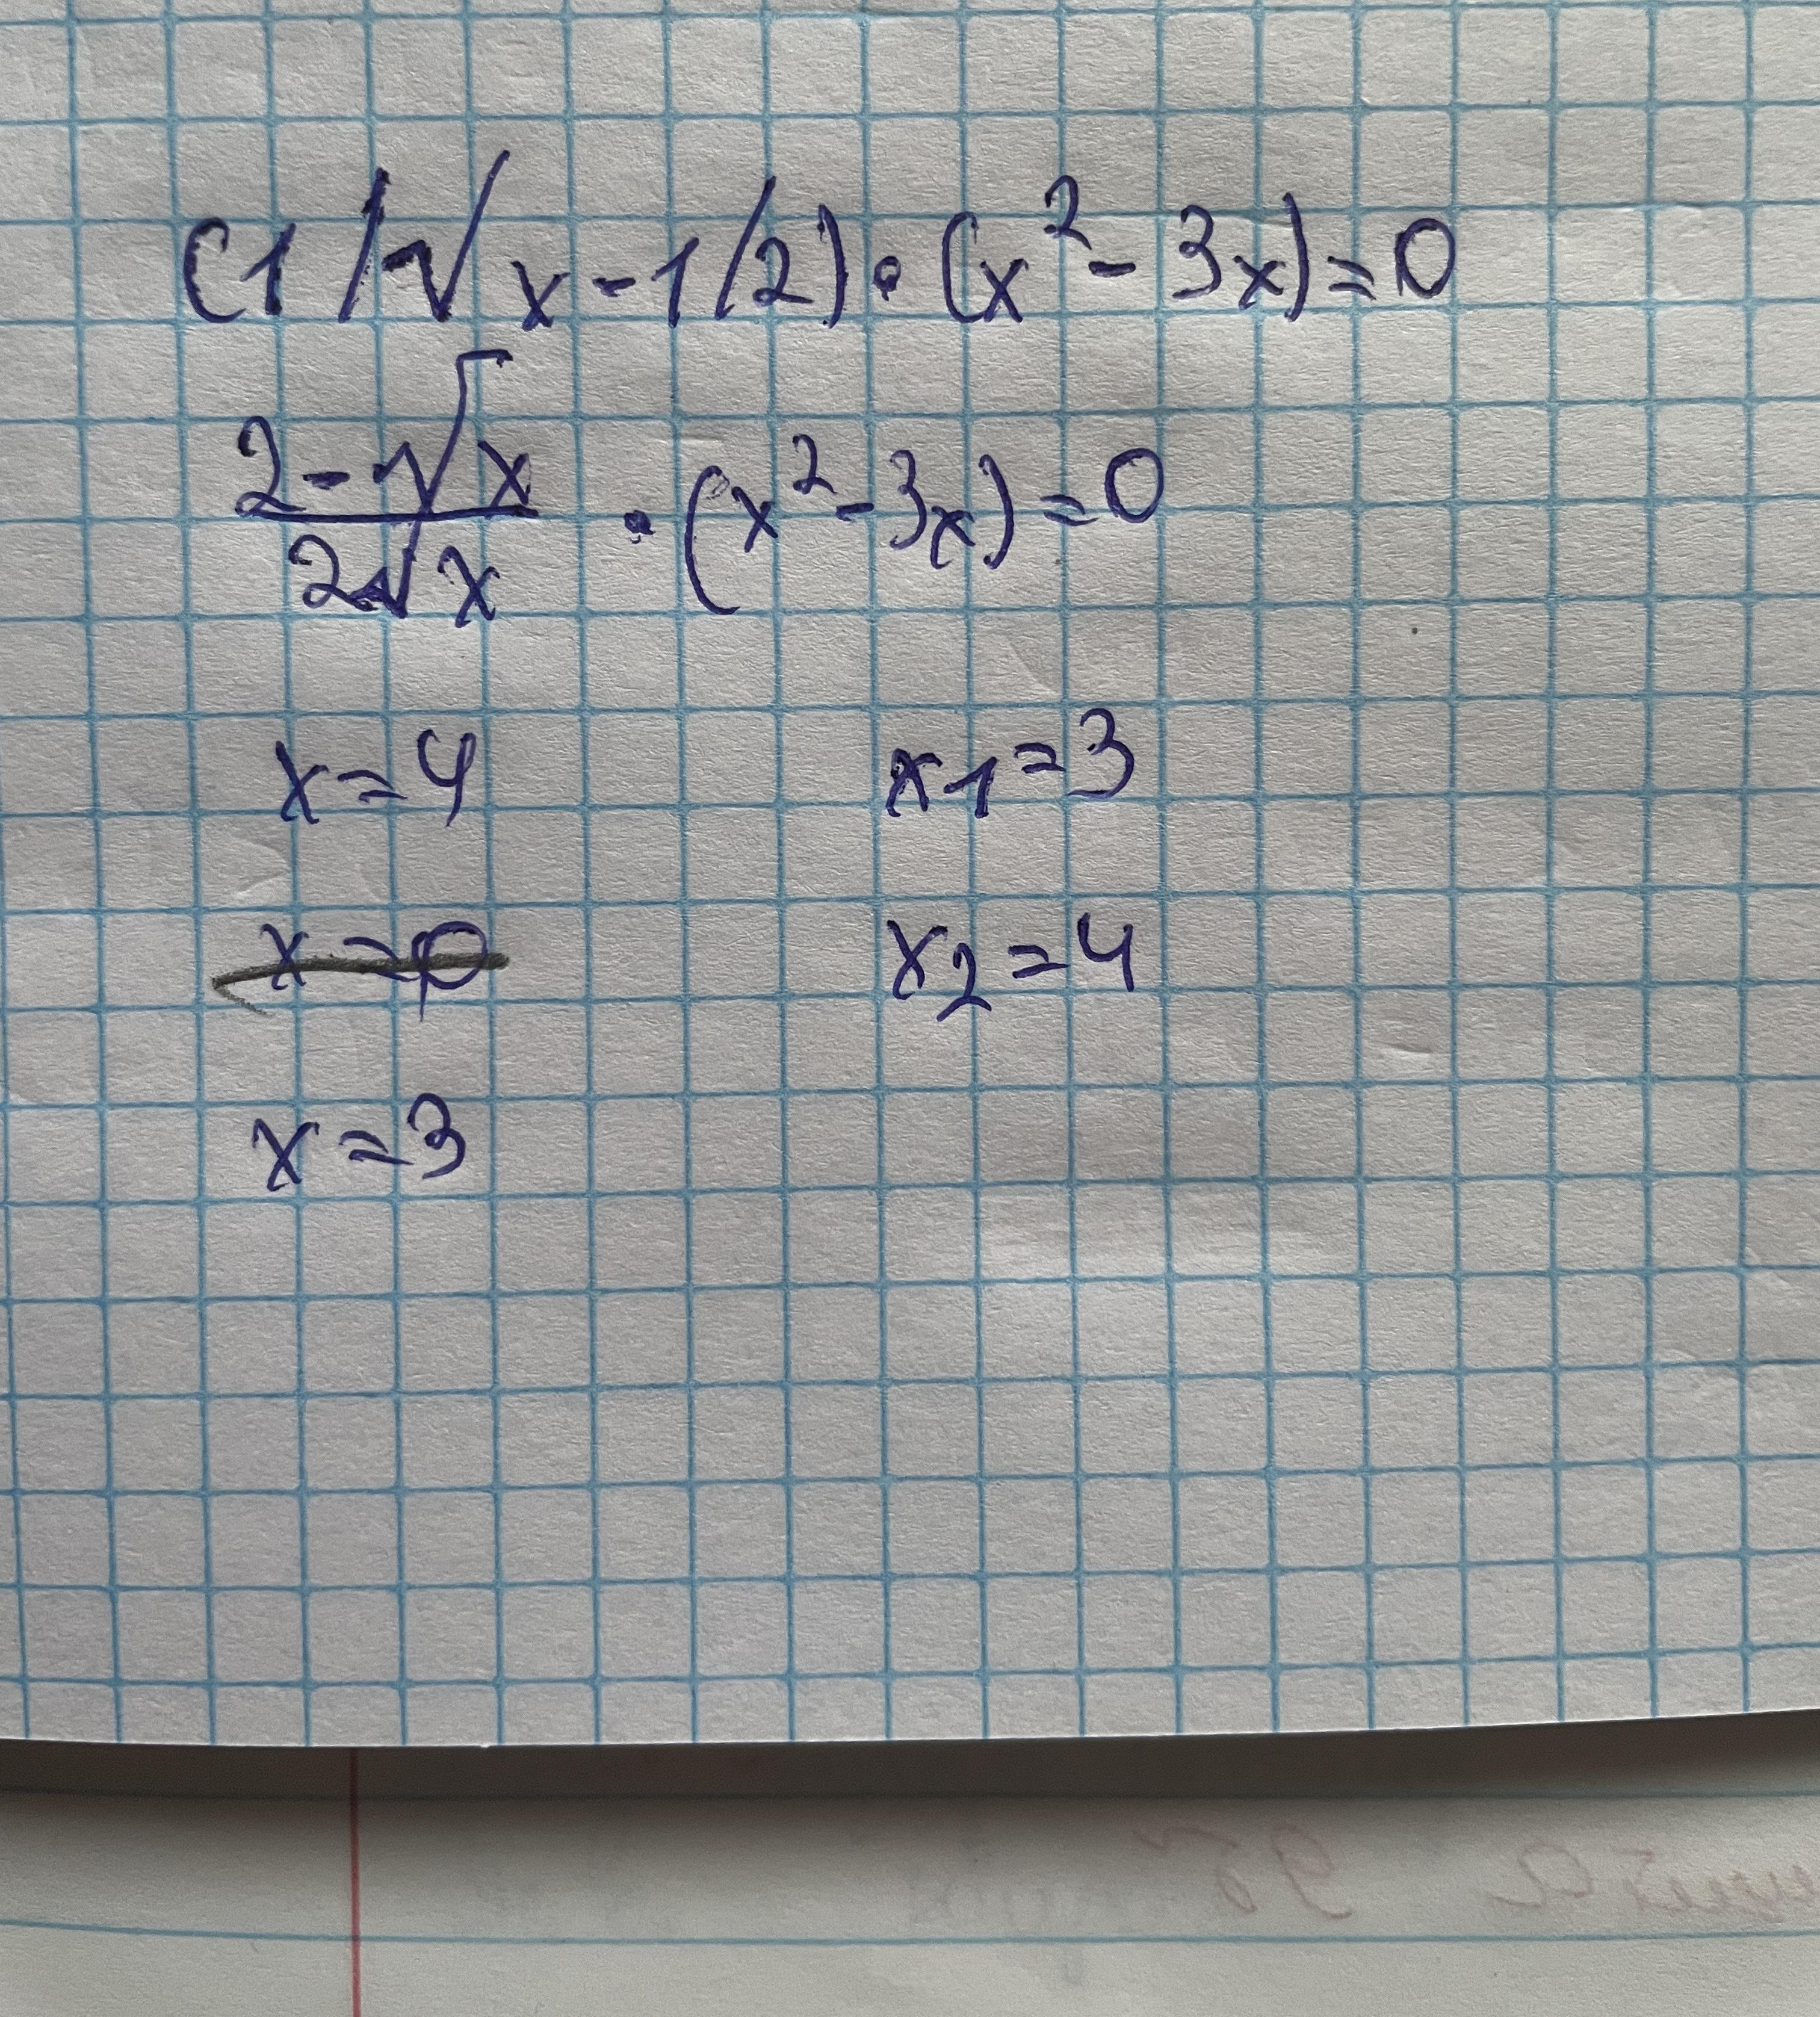 (1/√x-1/2)•(x²-3x)=0
2-√x/2√x •(x²-3x)=0
x=4 x1=3
x=0 x2=4
x=3
95